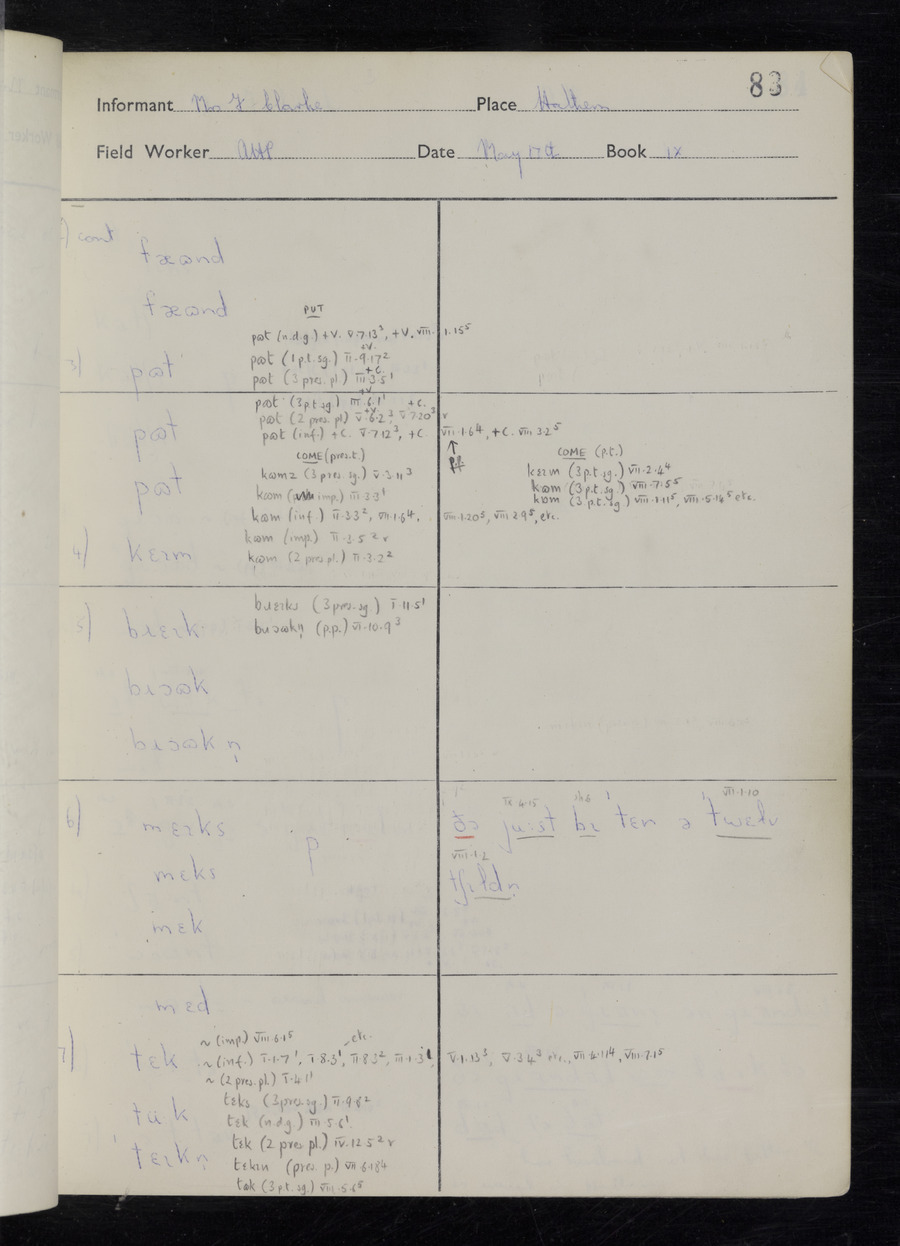 83
Informant Mrs F Clarke Place Hathern
Field Worker Date May 17th Book IX
cont
fɷnd
fɷnd
PUT
pɷt (n.d.g.) +V. V.7.13³, +V. VIII.1.15⁵
3) pɷt pɷt (1 p.t. sg.) II.9.17² +V.
pɷt (3 pres. pl.) III.3.5¹ +C.
pɷt (3 p.t. sg.) III.6.1¹ +V.
pɷt (2 pres. pl) V.6.2³ +V, V.7.20³ +C. r
pɷt pɷt (inf.) +C. V.7.12³, +C. VII.1.6⁴, +C. VIII.3.2⁵
COME (pres. t.) COME (p.t.)
kɷmz (3 pres. sg.) V.3.11³ kɛɪm (3 p.t. sg.) VII.2.4⁴
pɷt kɷm (imp.) III.3.3¹ kɷm (3 p.t. sg.) VIII.7.5⁵
kɷm (3 p.t. sg) VIII.1.11⁵, VIII.5.14⁵ etc.
kɷm (inf) II.3.3², VII.1.6⁴, VIII.1.20⁵, VIII.2.9⁵, etc.
kɷm (imp.) II.3.5² r
4) kɛɪm kɷm (2 pres pl.) II.3.2²
bɹɛɪks (3 pres. sg.) I.11.5¹
5) bɹɛɪk bɹɔɷkn̩ (p.p.) VI.10.9³
bɹɔɷk
bɹɔɷkn̩
IX.4.15 VII.1.10
6) mɛɪks p ðɔ ju:st bɪ ˈtɛn ə ˈtwɛlv
VIII.1.2
mɛks tʃɪldn̩
mɛk
mɛd
~ (imp.) VIII.6.1⁵
7) tɛk ~ (inf.) I.1.7¹, I.8.3¹, II.8.3², III.1.3¹, etc. V.1.13³, V.3.4³ etc., VII.4.11⁴, VIII.7.1⁵
~ (2 pres. pl.) I.4.1¹
tɛks (3 pres. sg.) II.9.6²
tɷk tɛk (n.d.g) III.5.6¹.
tɛk (2 pres pl.) IV.12.5² r
ˈtɛɪkn̩ tɛkɪn (pres. p.) VII.6.18⁴
tɷk (3 p.t. sg.) VIII.5.6⁵